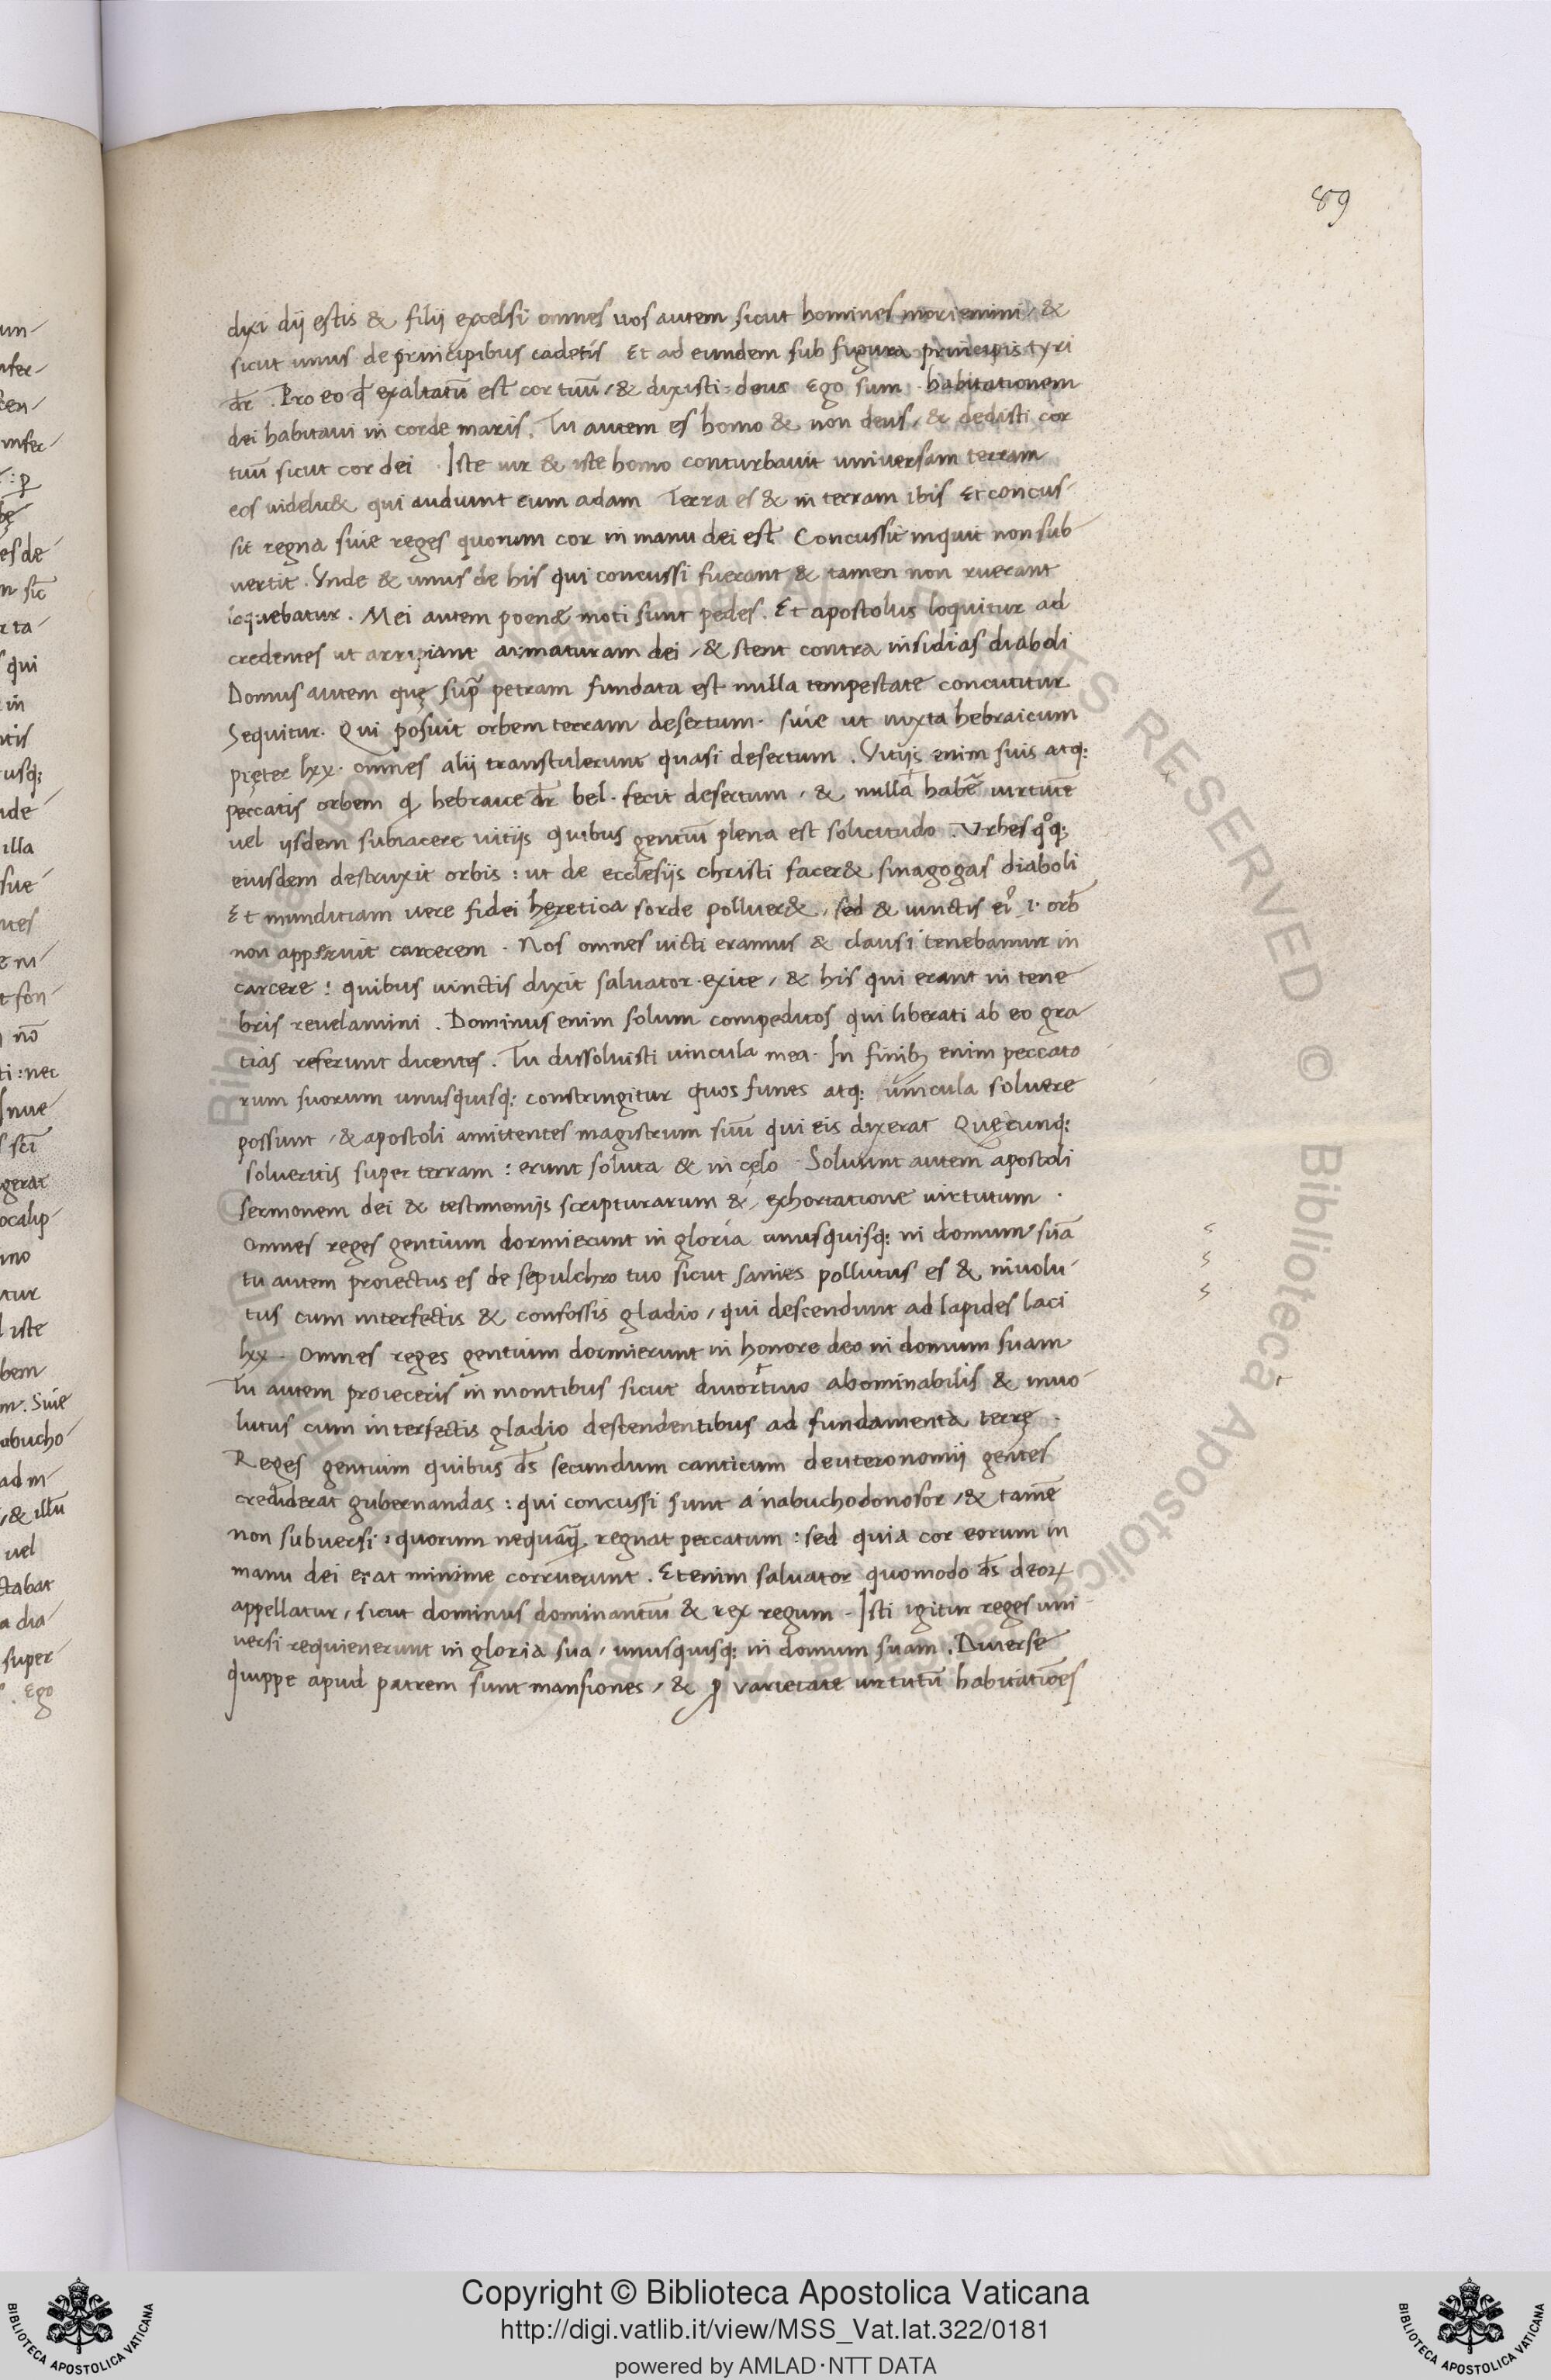 89
dixi dij estis & filij excelsi omnes uos autem sicut homines moriemini / &
sicut unus de principibus cadetis Et ad eundem sub figura principis tyri
dr̄ . Pro eo qđ exaltatū est cor tuū / & dixisti deus Ego sum . habitationem
dei habitaui in corde maris . Tu autem es homo & non deus / & dedisti cor
tuū sicut cor dei . Iste uir & iste homo conturbauit uniuersam terram
eos uidelic& qui audiunt cum adam Terra es & in terram ibis Et concus-
sit regna siue reges quorum cor in manu dei est Concussit inquit non sub-
vertit . Vnde & unus de his qui concussi fuerant & tamen non ruerant
loquebatur . Mei autem poene moti sunt pedes . Et apostolus loquitur ad
credentes ut arripiant armaturam dei / & stent contra insidias diaboli
Domus autem quę suꝑ petram fundata est nulla tempestate concutitur
Sequitur . Qui posuit orbem terram desertum . siue ut iuxta hebraicum
pręter lxx . omnes alij transtulerunt quasi desertum . Vitijs enim suis atq:
peccatis orbem qđ hebraice dr̄ bel . fecit desertum / & nullā habē virtutē
uel ijsdem subiacere uitijs quibus gentiū plena est solicitudo . Vrbes qͦq:
eiusdem destruxit orbis : ut de ecclesijs christi facer& sinagogas diaboli
Et munditiam uere fidei hęretica sorde polluer& / sed & uinctis eiꝰ .i. orb̄
non apperuit carcerem . Nos omnes uicti eramus & clausi tenebamur in
carcere : quibus uinctis dixit saluator . exite / & his qui erant in tene-
bris reuelamini . Dominus enim solum compeditos qui liberati ab eo gra-
tias referunt dicentes . Tu dissoluisti uincula mea . In finibꝫ enim peccato-
rum suorum unusquisq: constringitur quos funes atq: uincula soluere
possunt / & apostoli amittentes magistrum suū qui eis dixerat Quęcunq:
solueritis super terram : erunt soluta & in cęlo . Soluunt autem apostoli
sermonem dei & testimonijs scripturarum & exhortatione uirtutum .
Omnes reges gentium dormierunt in gloria unusquisq: in domum suā
tu autem proiectus es de sepulchro tuo sicut sanies pollutus es & inuolu-
tus cum interfectis & confossis gladio / qui descendunt ad lapides laci
lxx . Omnes reges gentium dormierunt in honore deo in domum suam
Tu autem proieceris in montibus sicut diuortiuo abominabilis & inuo-
lutus cum interfectis gladio descendentibus ad fundamenta terrę .
Reges gentium quibus ds̄ secundum canticum deuteronomij gentes
crediderat gubernandas : qui concussi sunt a nabuchodonosor / & tamē
non subversi : quorum nequāꝗ regnat peccatum : sed quia cor eorum in
manu dei erat minime corruerunt . Etenim saluator quomodo ds̄ deoꝝ
appellatur / sicut dominus dominantiū & rex regum . Isti igitur reges uni-
versi requieuerunt in gloria sua / unusquisq: in domum suam . Diuerse
quippe apud patrem sunt mansiones / & ꝓ varietate uirtutū habitatiōes
Copyright © Biblioteca Apostolica Vaticana
http://digi.vatlib.it/view/MSS_Vat.lat.322/0181
powered by AMLAD·NTT DATA